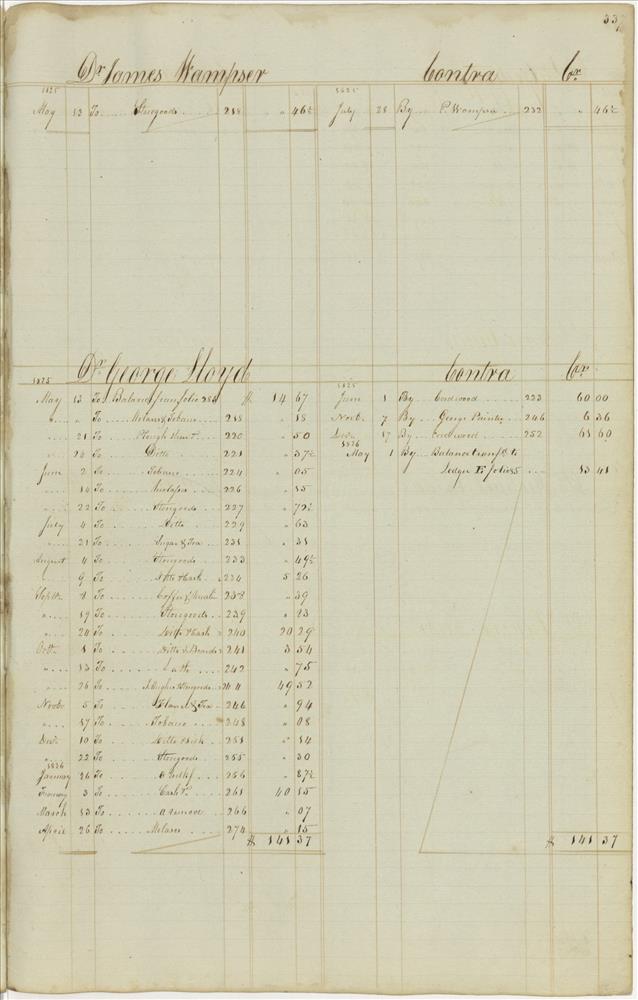 33
Dr. James Wampser Contra Cr.
1825 1825
May 13 To Storegoods 218 " 46½ July 28 By P. Wampser 232 " 46½
Dr. George Lloyd Contra Cr.
1825 1825
May 13 To Balance from folio 283 $ 14 67 June 1 By Cordwood 223 60 00
" " To Molasses & Tobacco 218 " 18 Novbr. 7 By George Painter 246 6 36
" 21 To Plough 220 " 50 Decbr. 17 By Cordwood 252 61 60
" 26 To Ditto 221 " 37½ 1826 May 1 By Balance transfd. to
June 2 To Tobacco 224 " 05 Ledger E folio 85 " 13 41
" 14 To Molasses 226 " 15
" 22 To Storegoods 227 " 72½
July 4 To Ditto 229 " 63
" 21 To Sugar & Tea 231 " 31
August 4 To Storegoods 233 " 49½
" 9 To Ditto & Cash 234 5 26
Septbr. 8 To Coffee & 238 " 39
" 19 To Storegoods 239 " 23
" 24 To Ditto & Cash 240 20 29
Octbr. 1 To Ditto & 241 3 54
" 13 To 242 " 75
" 26 To Storegoods 244 49 52
Novbr. 5 To Flannel & Tea 246 " 94
" 17 To Tobacco 248 " 08
Decbr. 10 To Ditto & 251 " 14
" 22 To Storegoods 255 " 30
1826
January 26 To 256 " 87½
February 3 To Cash 261 40 15
March 13 To Almanac 266 " 07
April 26 To Molasses 274 " 15
$ 141 37 $ 141 37